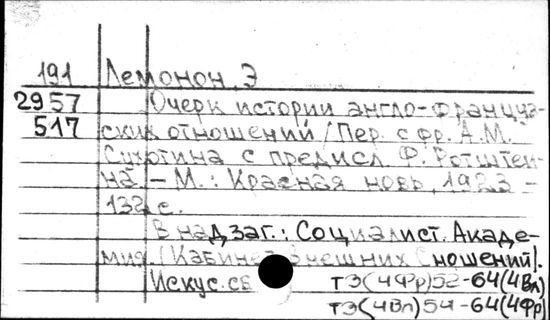 191 Лемонон, Э
2957 Очерк истории англо-француз-
517 ских отношений / Пер. с фр. А.М.
Сухотина с предисл. Ф. Ротштей-
на. – М.: Красная новь, 1923 –
132 с.
В надзаг.: Социалист. Акаде-
мия. (Кабинет внешних сношений).
Искус. св
тэ(4Фр)52-64(4Вл)
тэ(4Вл)54-64(4Фр)